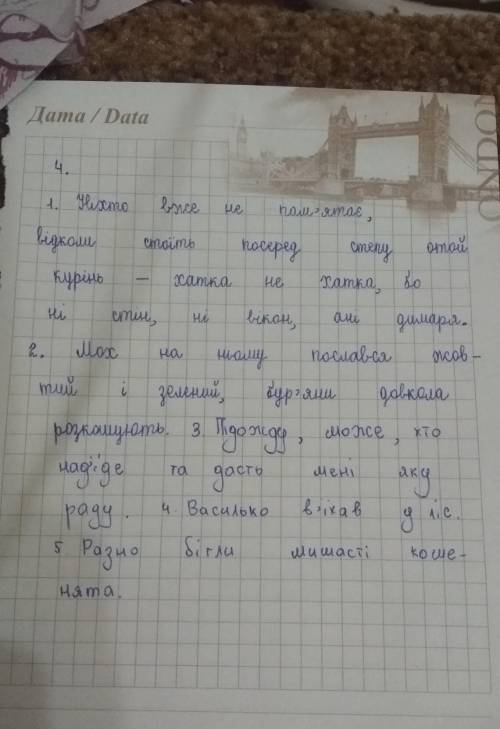 Дата / Data
LONDON
4.
1. Ніхто вже не пам'ятає,
відколи стоїть посеред степу отой
курінь – хатка не хатка, бо
ні стін, ні вікон, ані димаря.
2. Мох на ньому послався жов-
тий і зелений, бур'яни довкола
розкошують. 3. Підожду, може, хто
над'їде та дасть мені яку
раду. 4. Василько в'їхав у ліс.
5 Разно бігли мишасті коше-
нята.